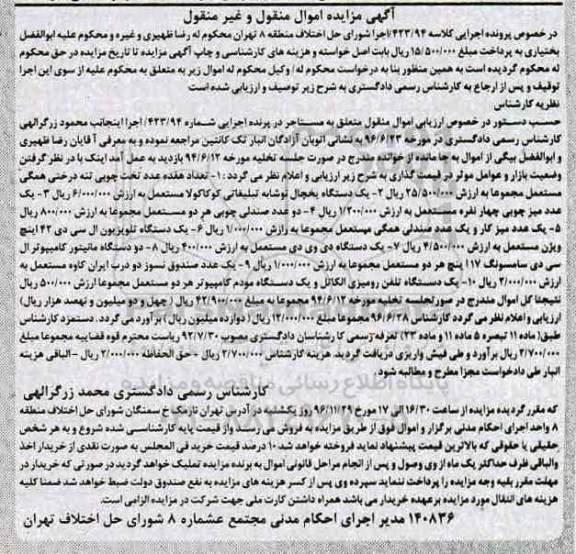 آگهی مزایده اموال منقول و غیر منقول
در خصوص پرونده اجرایی کلاسه ۴۲۳/۹۴/اجرا شورای حل اختلاف منطقه ۸ تهران محکوم له رضا ظهیری و غیره و محکوم علیه ابوالفضل
بختیاری به پرداخت مبلغ ۱۵/۵۰۰/۰۰۰ ریال بابت اصل خواسته و هزینه های کارشناسی و چاپ آگهی مزایده تا تاریخ مزایده در حق محکوم
له محکوم گردیده است به همین منظور بنا به درخواست محکوم له/ وکیل محکوم له اموال زیر به متعلق به محکوم علیه از سوی این اجرا
توقیف و پس از ارجاع به کارشناس رسمی دادگستری به شرح زیر توصیف و ارزیابی شده است
نظریه کارشناس
حسب دستور در خصوص ارزیابی اموال منقول متعلق به مستاجر در پرنده اجرایی شماره ۴۲۳/۹۴/ اجرا اینجانب محمود زرگرالهی
کارشناس رسمی دادگستری در مورخه ۹۶/۶/۲۳ به نشانی اتوبان آزادگان انبار تک کانتین مراجعه نموده و به معرفی آ قایان رضا ظهیری
و ابوالفضل بیگی از اموال به جا مانده از خوانده مندرج در صورت جلسه تخلیه مورخه ۹۴/۶/۱۲ بازدید به عمل آمد اینک با در نظر گرفتن
وضعیت بازار و عوامل موثر در قیمت گذاری به شرح زیر ارزیابی و اعلام نظر می گردد :۱- تعداد هفده عدد تخت چوبی تنه درختی همگی
مستعمل مجموعا به ارزش ۲۵/۵۰۰/۰۰۰ ریال ۲- یک دستگاه یخچال نوشابه تبلیغاتی کوکاکولا مستعمل به ارزش ۶/۰۰۰/۰۰۰ ریال ۳- یک
عدد میز چوبی چهار نفره مستعمل به ارزش ۱/۲۰۰/۰۰۰ ریال ۴- دو عدد صندلی چوبی هر دو مستعمل مجموعا به ارزش ۸۰۰/۰۰۰ ریال
۵- یک عدد میز کار و یک عدد صندلی همگی مهستعمل مجموعا به رازش ۱/۰۰۰/۰۰۰ ریال ۶- یک دستگاه تلویزیون ال سی دی ۴۲ اینچ
ویژن مستعمل به ارزش ۴/۵۰۰/۰۰۰ ریال ۷- یک دستگاه دی وی دی مستعمل به ارزش ۴۰۰/۰۰۰ ریال ۸- دو دستگاه مانیتور کامپیوتر ال
سی دی سامسونگ ۱۷ ا ینچ هر دو مستعمل مجموعا به ارزش ۱/۰۰۰/۰۰۰ ریال ۹- یک عدد صندوق نسوز دو درب ایران کاوه مستعمل به
ارزش ۲/۰۰۰/۰۰۰ ریال ۱۰- یک دستگاه تلفن رومیزی الکاتل و یک دستگاه مودم کامپیوتر هر دو مستعمل مجموعا به ارزش ۵۰۰/۰۰۰ ریال
نتیجتا کل اموال مندرج در صورتجلسه تخلیه مورخه ۹۴/۶/۱۲ مجموعا به مبلغ ۴۲/۹۰۰/۰۰۰ ریال (چهل و دو میلیون و نهصد هزار ریال)
ارزیابی و اعلام نظر می گردد کارشناس ۹۶/۶/۲۸ مجموعا مبلغ ۱۲/۰۰۰/۰۰۰ ریال (دوازده میلیون ریال) برآورد می گردد . دستمزد کارشناس
طبق(ماده ۱۱ تبصره ۵ ماده ۱۱ و ماده ۲۳) تعرفه رسمی کا رشناسان دادگستری مصوب ۹۲/۷/۳۰ ریاست محترم قوه قضاییه مجموعا مبلغ
۲/۷۰۰/۰۰۰ ریال برآورد و طی فیش واریزی دریافت گردید. هزینه کارشناس ۲/۷۰۰/۰۰۰ ریال - حق الحفاظه ۲/۰۰۰/۰۰۰ ریال -الباقی هزینه
انبار طی دادخواست مجزا مطرح و مطالبه شود.
کارشناس رسمی دادگستری محمد زرگرالهی
که مقرر گردیده مزایده از ساعت ۱۶/۳۰ الی ۱۷ مورخ ۹۶/۱۱/۲۹ روز یکشنبه در آدرس تهران نارمک خ سمنگان شورای حل اختلاف منطقه
۸ واحد اجرای احکام مدنی برگزار و اموال فوق از طریق مزایده به فروش می رسد و از قیمت پایه کارشناسی شده شروع و به هر شخص
حقیقی یا حقوقی که بالاترین قیمت پیشنهاد نماید فروخته خواهد شد ۱۰ درصد قیمت خرید فی المجلس به صورت نقدی از خریدار اخذ
والباقی ظرف حداکثر یک ماه از وی وصول و پس از انجام مراحل قانونی اموال به برنده مزایده تملیک خواهد گردید در صورتی که خریدار در
مهلت مقرر بقیه وجه مزایده را پرداخت ننماید سپرده وی پس از کسر هزینه های مزایده به نفع صندوق دولت ضبط خواهد شد ضمنا کلیه
هزینه های انتقال مورد مزایده برعهده خریدار می باشد همراه داشتن کارت ملی جهت شرکت در مزایده الزامی است.
۱۴۰۸۳۶ مدیر اجرای احکام مدنی مجتمع عشماره ۸ شورای حل اختلاف تهران
پایگاه اطلاع رسانی مناقصه و مزایده